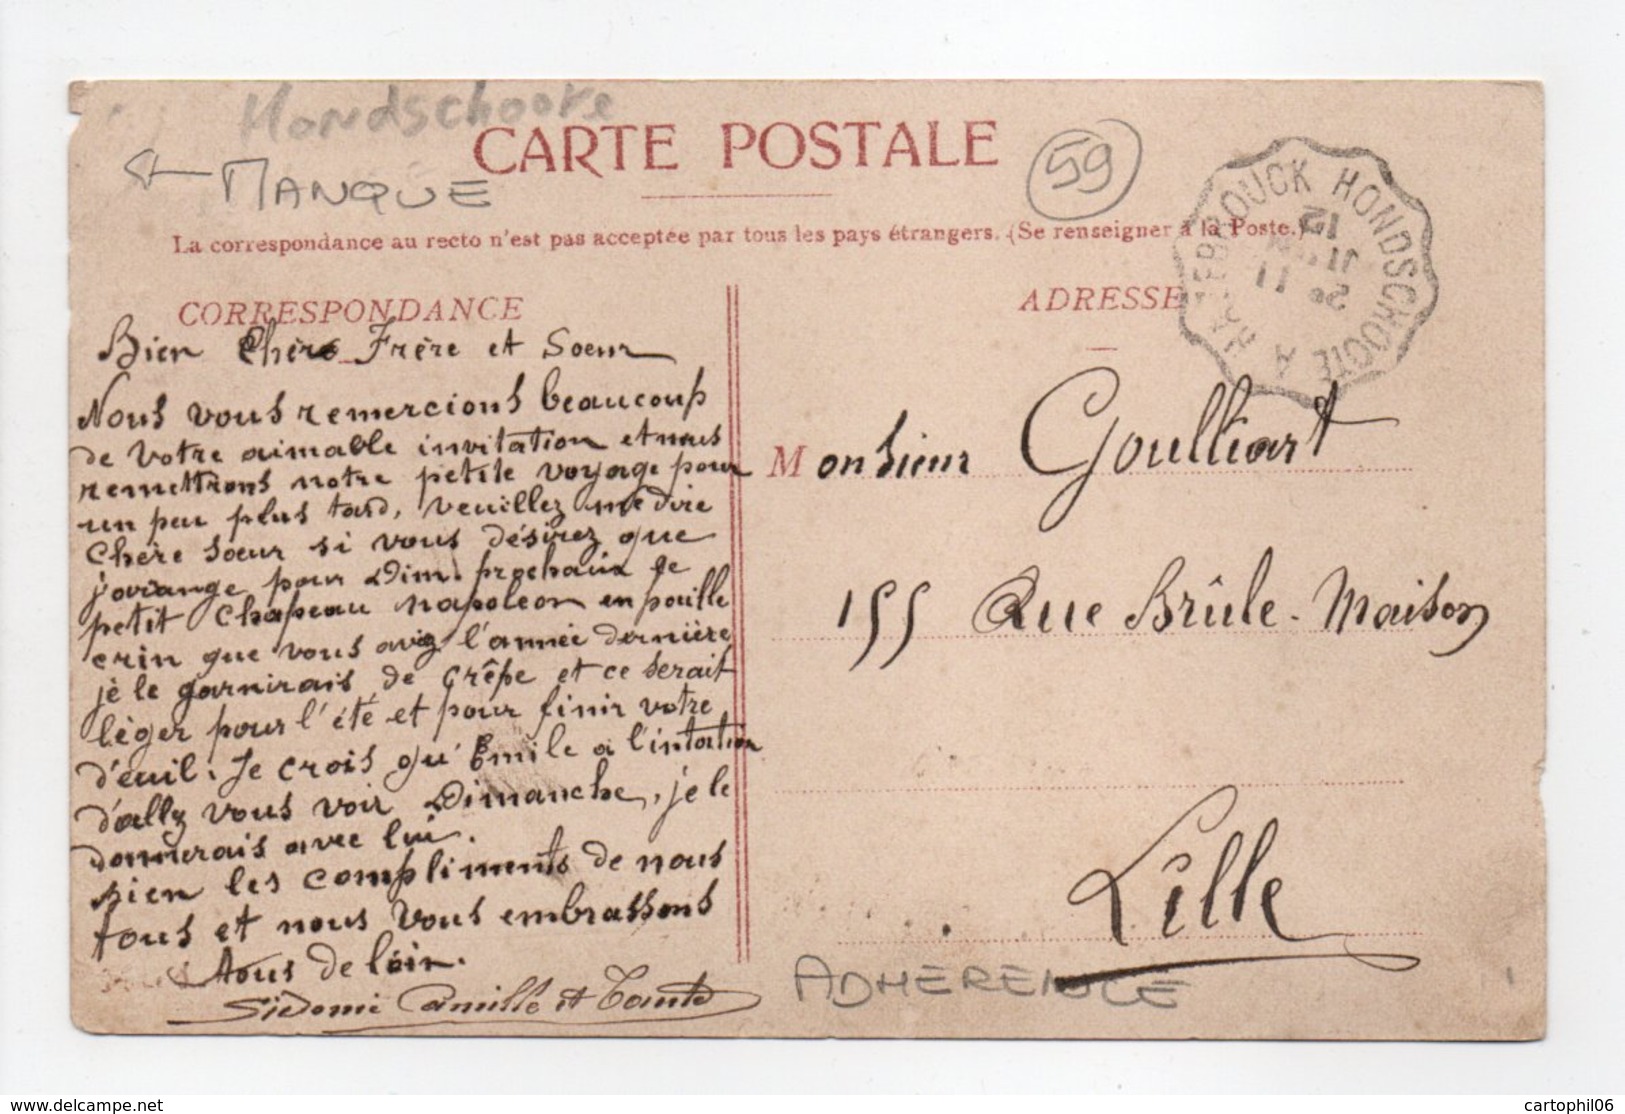 Hondschoote
MANQUE
CARTE POSTALE
59
La correspondance au recto n'est pas acceptée par tous les pays étrangers. (Se renseigner à la Poste.)
HAZEBROUCK HONDSCHOOTE A
12
11
CORRESPONDANCE
Bien Chère Frère et Soeur
Nous vous remercions beaucoup
de votre aimable invitation et nous
remettrons notre petite voyage pour
un peu plus tard, veuillez me dire
Chère soeur si vous désirez que
j'arange pour Dim. prochain le
petit chapeau napoleon en paille
crin que vous aviez l'année dernière
je le garnirais de crêpe et ce serait
lèger pour l'été et pour finir votre
d'euil. Je crois qu'Emile a l'intation
d'allez vous voir Dimanche, je le
donnerais avec lui.
Bien les compliments de nous
tous et nous vous embrassons
tous de loin.
Sidonie Camille et Tante
ADRESSE
Monsieur Goulliart
155 Rue Brûle-Maison
Lille
ADHERENCE
delcampe.net
cartophil06